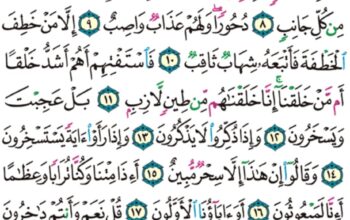 مِن كُلِّ جَانِبٍ ٨ دُحُورًا ۖ وَلَهُمْ عَذَابٌ وَاصِبٌ ٩ إِلَّا مَنْ خَطِفَ
ٱلْخَطْفَةَ فَأَتْبَعَهُۥ شِهَابٌ ثَاقِبٌ ١٠ فَٱسْتَفْتِهِمْ أَهُمْ أَشَدُّ خَلْقًا
أَم مَّنْ خَلَقْنَا ۚ إِنَّا خَلَقْنَٰهُم مِّن طِينٍ لَّازِبٍ ١١ بَلْ عَجِبْتَ
وَيَسْخَرُونَ ١٢ وَإِذَا ذُكِّرُوا۟ لَا يَذْكُرُونَ ١٣ وَإِذَا رَأَوْا۟ ءَايَةً يَسْتَسْخِرُونَ
١٤ وَقَالُوٓا۟ إِنْ هَٰذَآ إِلَّا سِحْرٌ مُّبِينٌ ١٥ أَءِذَا مِتْنَا وَكُنَّا تُرَابًا وَعِظَٰمًا
أَءِنَّا لَمَبْعُوثُونَ ١٦ أَوَءَابَآؤُنَا ٱلْأَوَّلُونَ ١٧ قُلْ نَعَمْ وَأَنتُمْ دَٰخِرُونَ